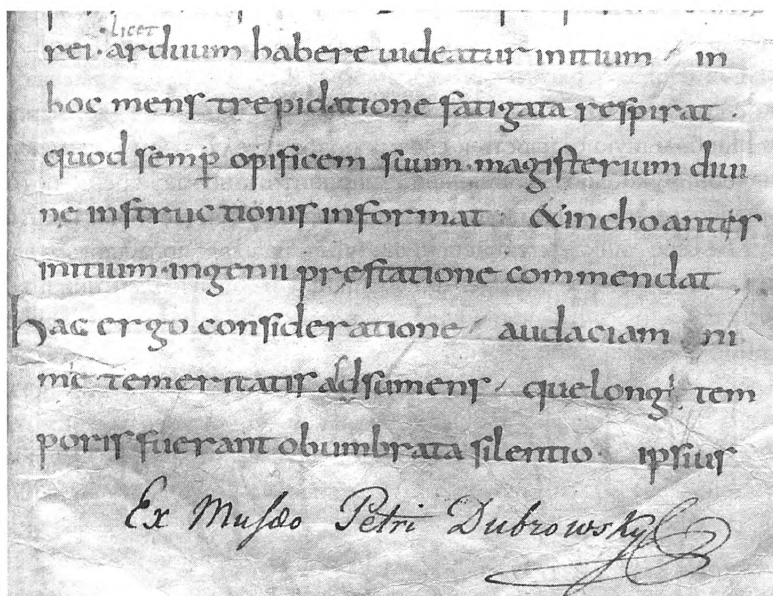 licet
rei · arduum habere uideatur initium ⸝ in
hoc mens trepidatione fatigata respirat ·
quod semꝑ opificem suum · magisterium diui
ne instructionis informat · & inchoantis
initium · ingenii prestatione commendat ·
hac ergo consideratione ⸝ audaciam ni
mie temeritatis adsumens ⸝ que longi tem
poris fuerant obumbrata silentio · ipsius
Ex Musæo Petri Dubrowsky